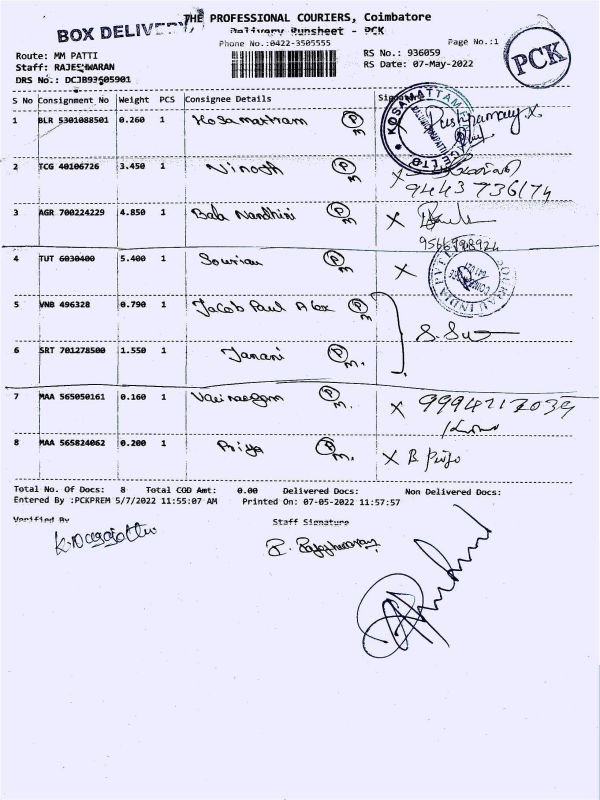 BOX DELIVERY
THE PROFESSIONAL COURIERS, Coimbatore
Delivery Runsheet - PCK
Phone No.:0422-3505555
Page No.:1
PCK
Route: MM PATTI
RS No.: 936059
Staff: RAJESWARAN
RS Date: 07-May-2022
DRS No.: DCJB93605901
S No Consignment No Weight PCS Consignee Details
1 BLR 5301088501 0.260 1 Kosamattam P M
KOSAMATTAM
2 TCG 40106726 3.450 1 Vinoth P M
9443736174
3 AGR 700224229 4.850 1 Bala Nandhini P M
4 TUT 6030400 5.400 1 Souriau P M
5 VNB 496328 0.790 1 Jacob Paul Alex P M
6 SRT 701278500 1.550 1 Janani P M.
7 MAA 565050161 0.160 1 P M. X
8 MAA 565824062 0.200 1 Priya P M. X B
Total No. Of Docs: 8 Total COD Amt: 0.00 Delivered Docs: Non Delivered Docs:
Entered By :PCKPREM 5/7/2022 11:55:07 AM Printed On: 07-05-2022 11:57:57
Verified By Staff Signature